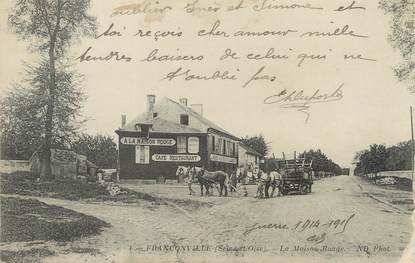 oublier Inès et Simone et
toi reçois cher amour mille
tendres baisers de celui qui ne
t'oublie pas
A LA MAISON ROUGE
CAFE RESTAURANT
guerre 1914-1915
1 - FRANCONVILLE (Seine-et-Oise). - La Maison Rouge. ND Phot.